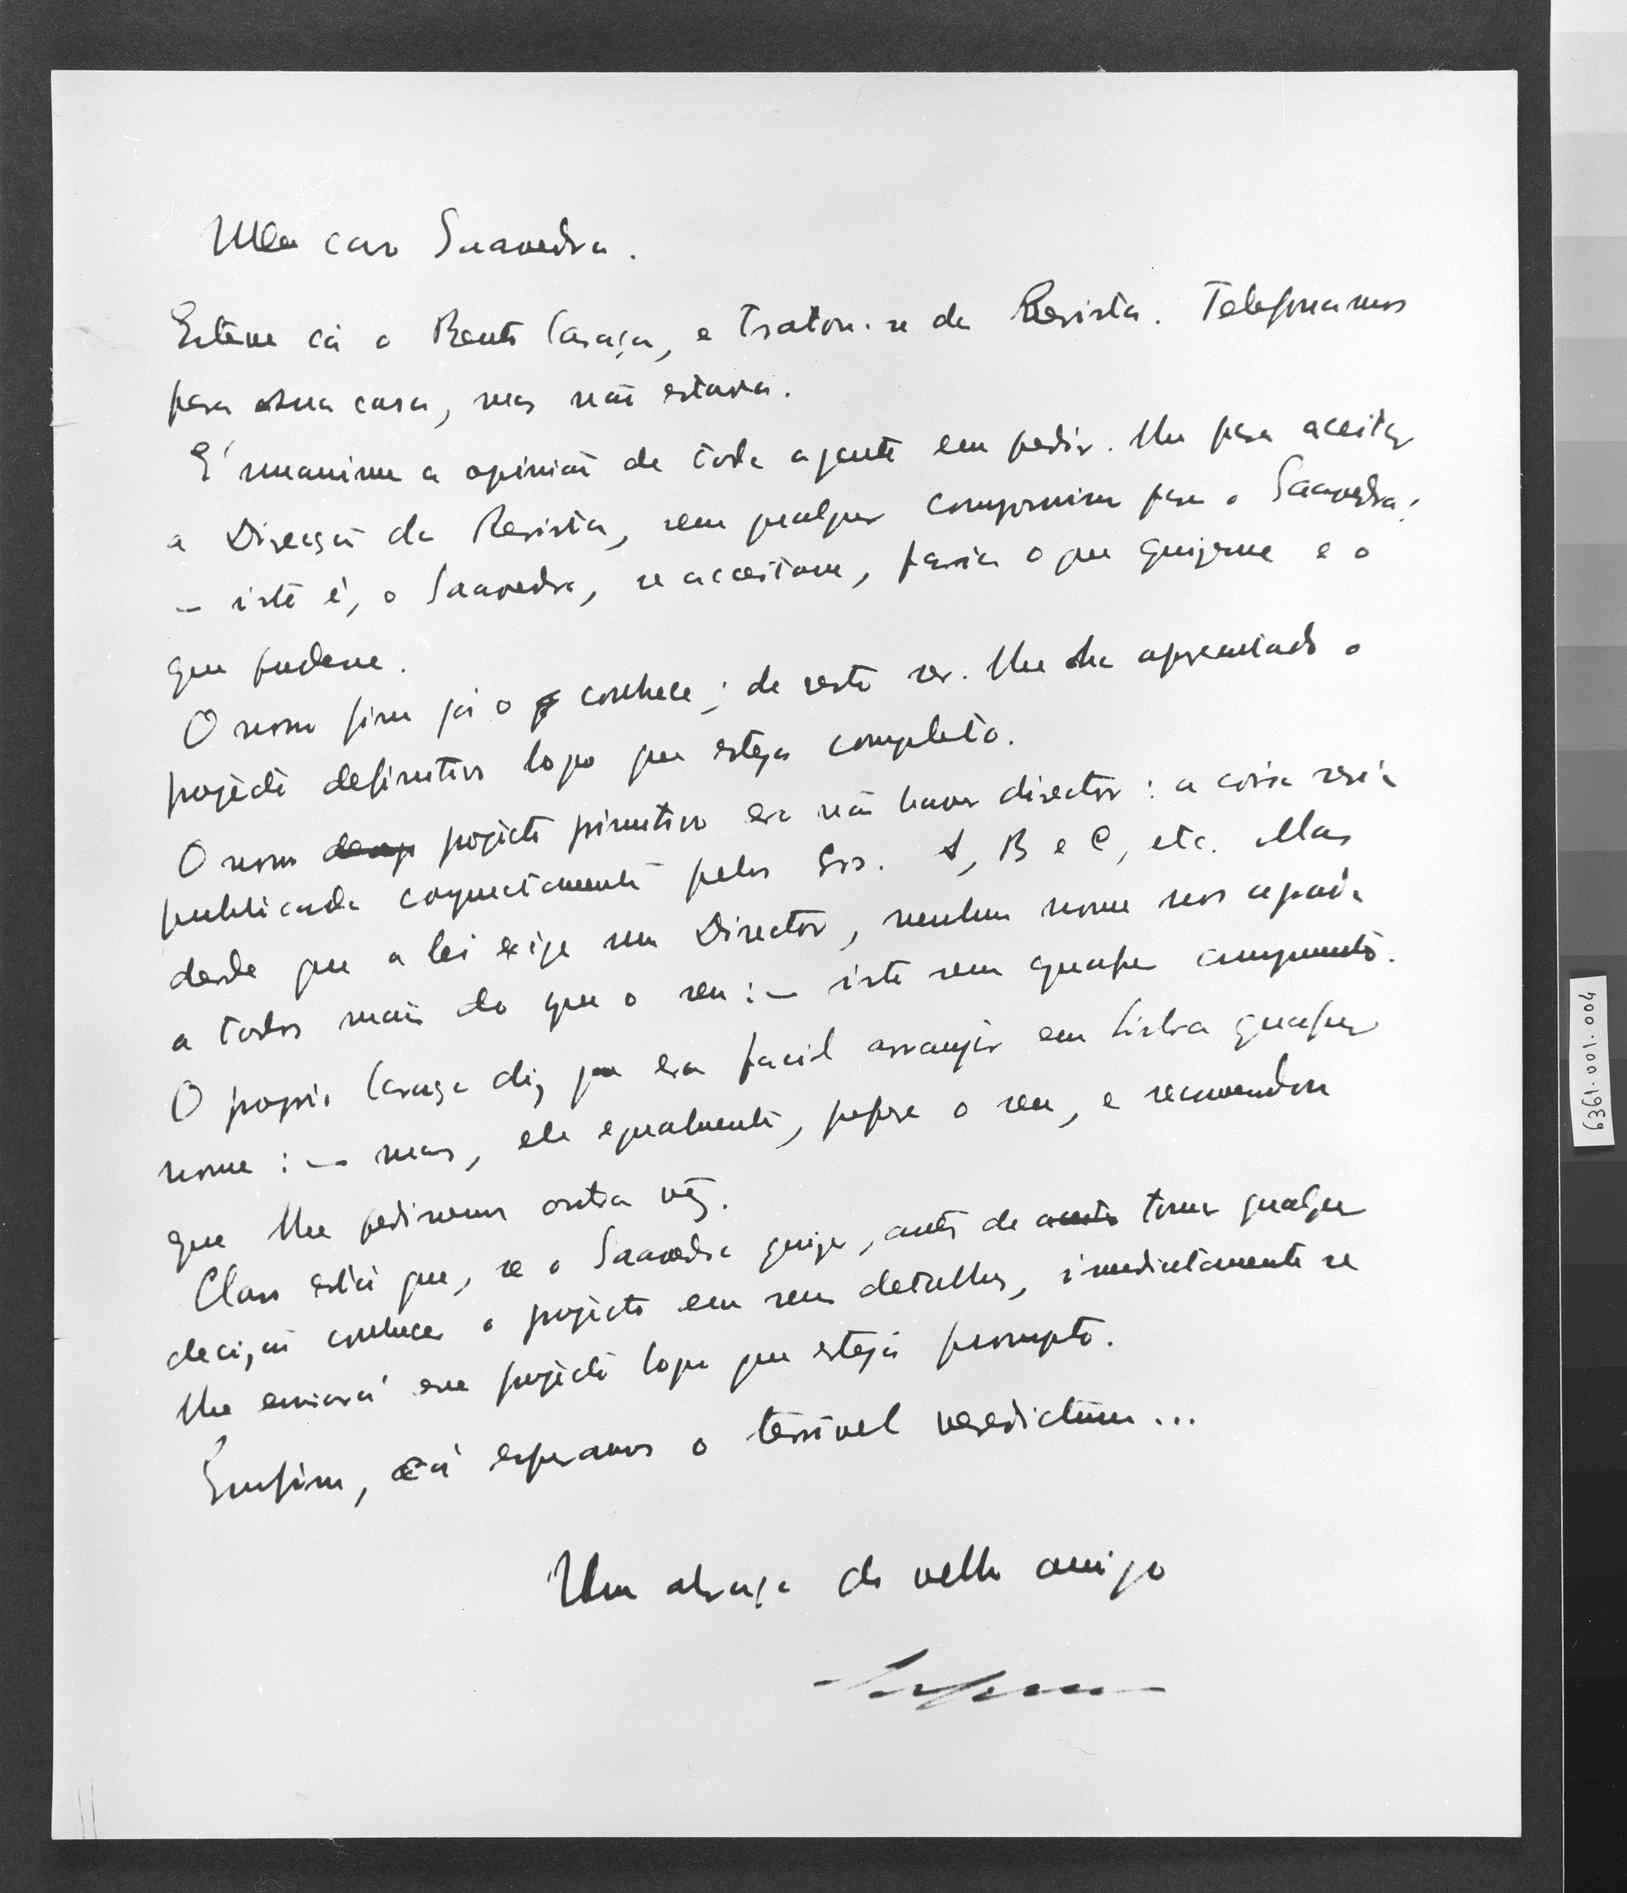 Meu caro Saavedra.
Esteve cá o Bento Caraça, e tratou-se da Revista. Telefonamos
para sua casa, mas não estava.
É unanime a opinião de toda a gente em pedir-lhe para aceitar
a Direcção da Revista, sem qualquer compromisso para o Saavedra;
— isto é, o Saavedra, se acceitasse, faria o que quizesse e o
que pudesse.
O nosso fim já o conhece; de resto ser-lhe ha apresentado o
projécto definitivo logo que esteja completo.
O nosso projécto primitivo era não haver director: a coisa seria
publicada conjuctamente pelos Srs. A, B e C, etc. Mas
desde que a lei exige um Director, nenhum nome nos agrada
a todos mais do que o seu: — isto sem qualquer cumprimento.
O proprio Caraça diz que era facil arranjar em Lisboa qualquer
nome: — mas, ele egualmente, prefere o seu, e recomendou
que lhe pedissemos outra vêz.
Claro está que, se o Saavedra quizer, antes de tomar qualquer
decizão conhecer o projécto em seus detalhes, imediatamente se
lhe enviará esse projécto logo que esteja prompto.
Emfim, cá esperamos o terrivel veredictum...
Um abraço do velho amigo
6361.001.004